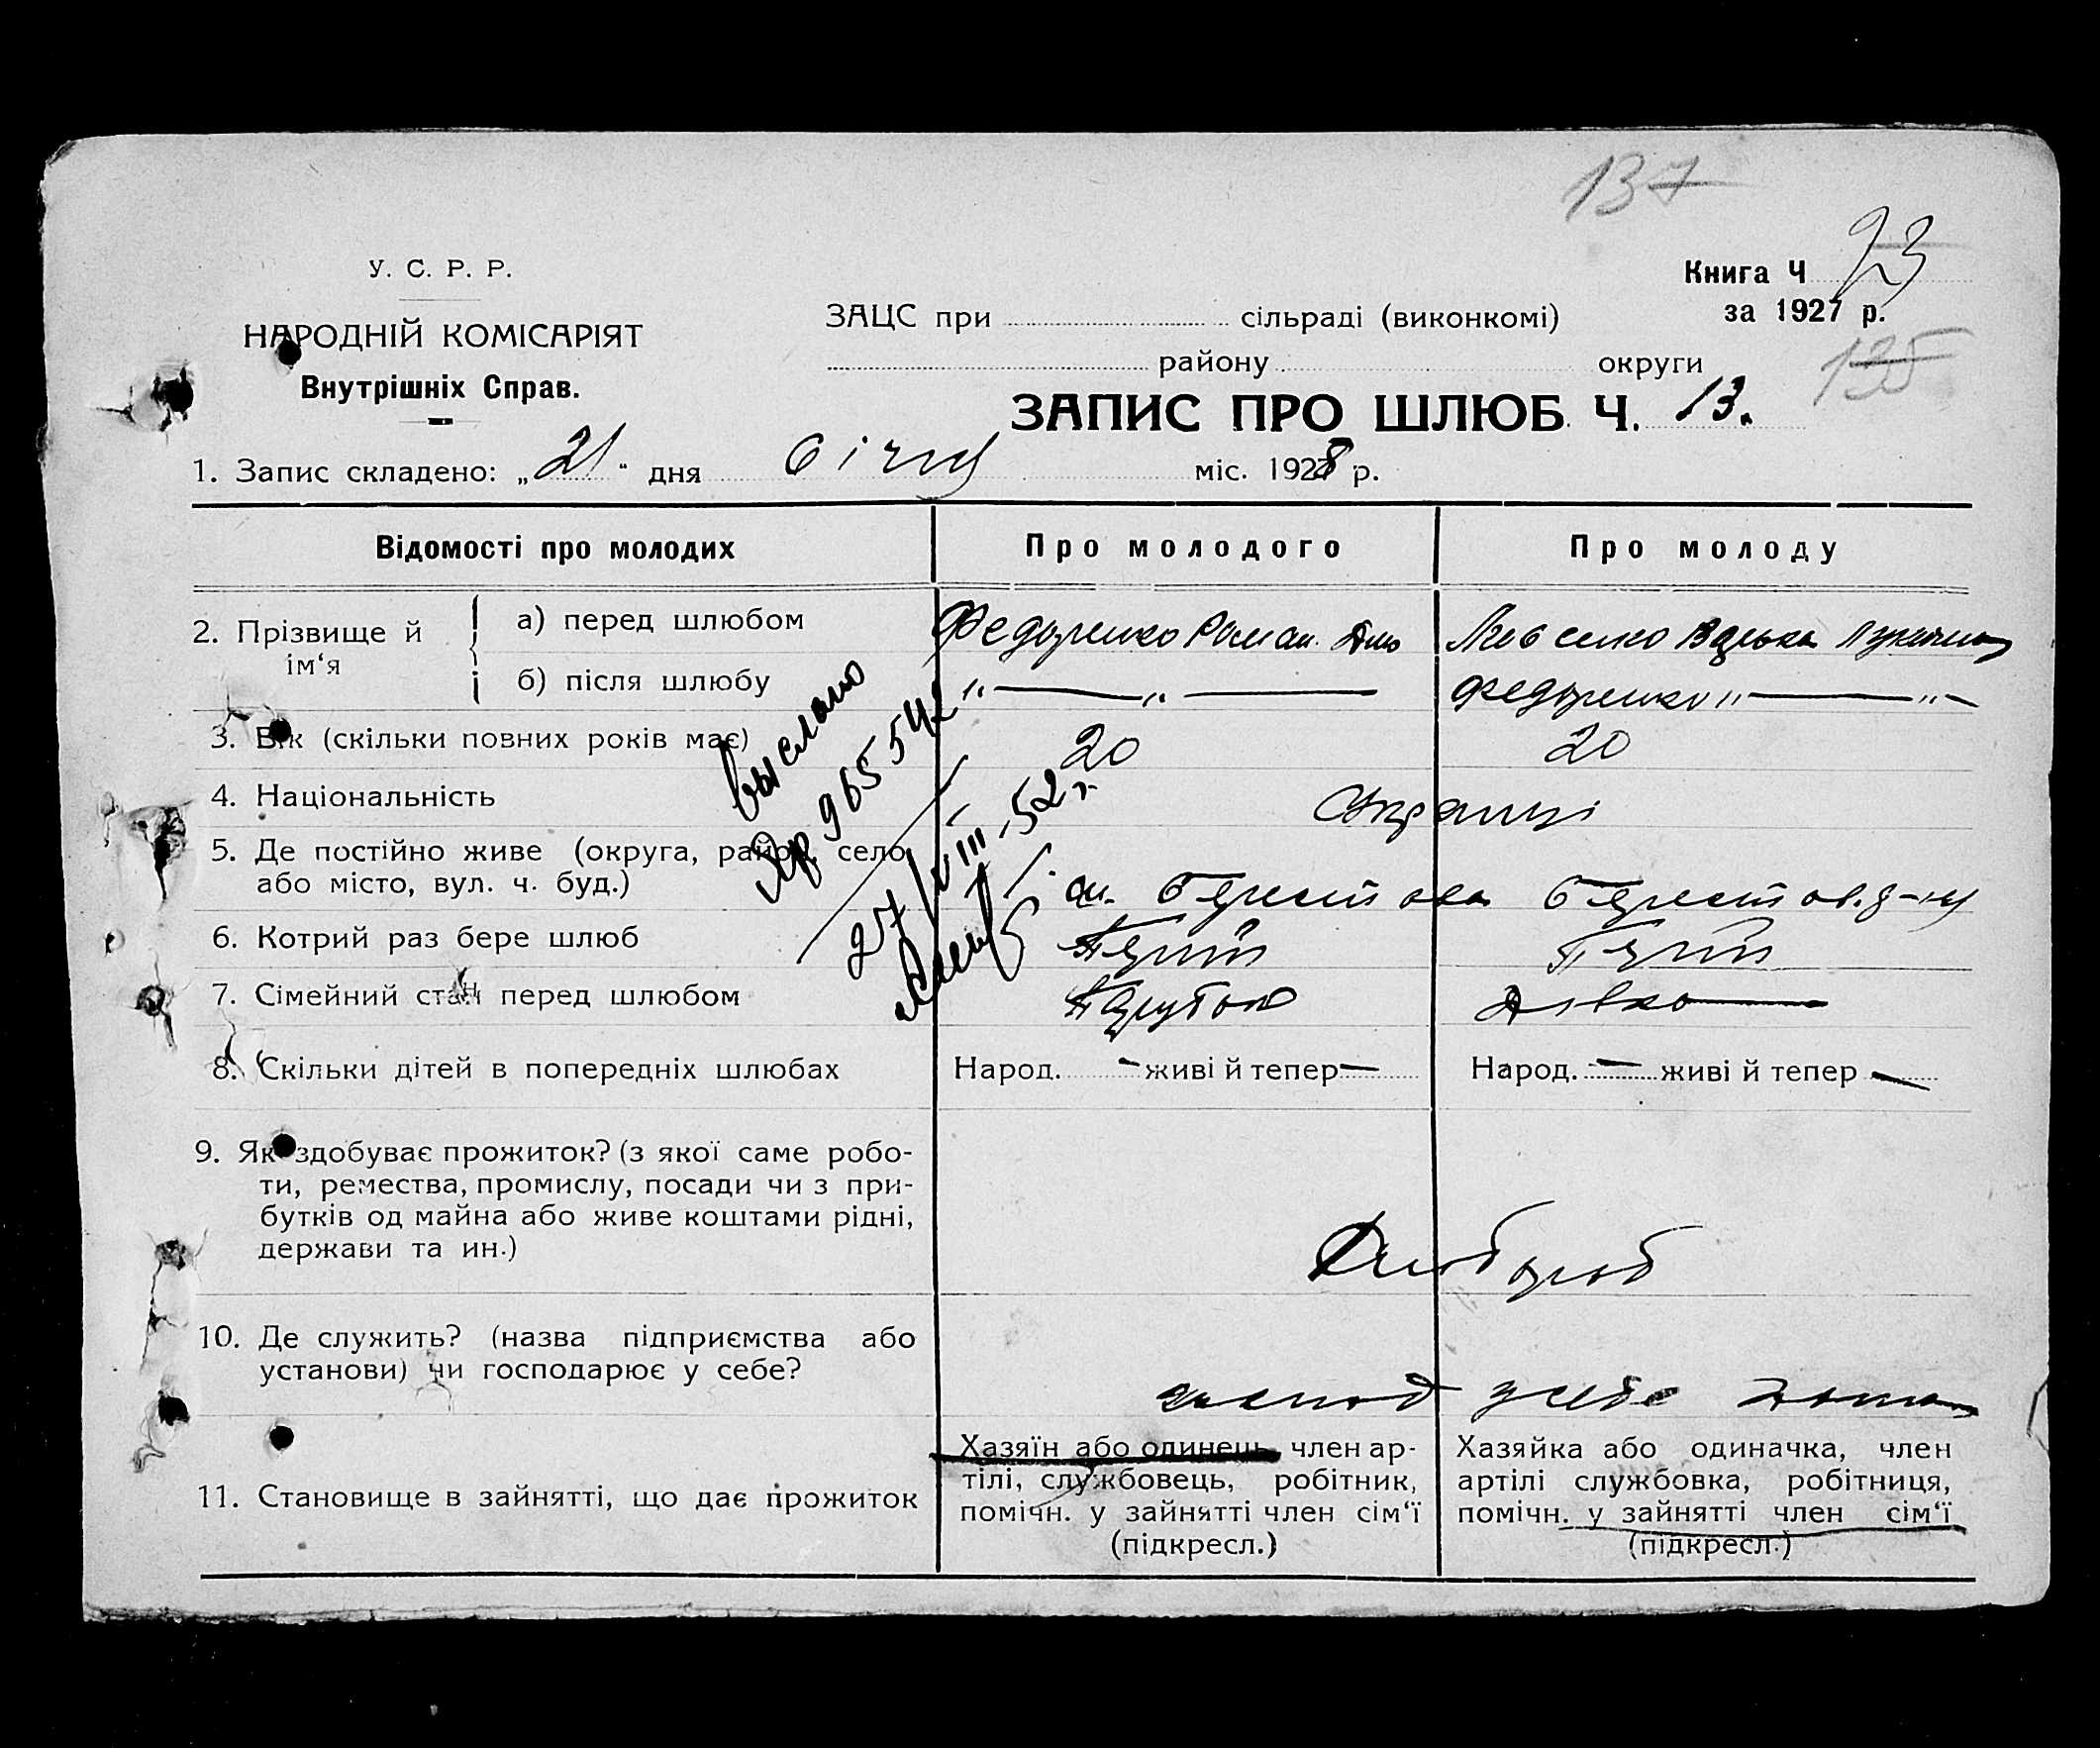 137
У. С. Р. Р.
НАРОДНІЙ КОМІСАРІЯТ
Внутрішніх Справ.
Книга Ч 93
за 1927 р.
135
ЗАЦС при сільраді (виконкомі)
району округи
ЗАПИС ПРО ШЛЮБ Ч. 13.
1. Запис складено: „21" дня Січня міс. 1928 р.
Відомості про молодих Про молодого Про молоду
2. Прізвище й ім'я
а) перед шлюбом Федоренко Роман
б) після шлюбу " — " — Федоренко " — " —
3. Вік (скільки повних років має) 20 20
4. Національність Українці
5. Де постійно живе (округа, район, село
або місто, вул. ч. буд.) Берестов
6. Котрий раз бере шлюб Перший Перший
7. Сімейний стан перед шлюбом Парубок Дівка
8. Скільки дітей в попередніх шлюбах Народ. — живі й тепер — Народ. — живі й тепер —
9. Як здобуває прожиток? (з якої саме робо-
ти, ремества, промислу, посади чи з при-
бутків од майна або живе коштами рідні,
держави та ин.) Хлібороб
10. Де служить? (назва підприємства або
установи) чи господарює у себе? господ у себе дома
11. Становище в зайнятті, що дає прожиток
Хазяїн або одинець, член ар-
тілі, службовець, робітник,
помічн. у зайнятті член сім'ї
(підкресл.)
Хазяйка або одиначка, член
артілі службовка, робітниця,
помічн. у зайнятті член сім'ї
(підкресл.)
выслано
965542
27/VIII.52 г.